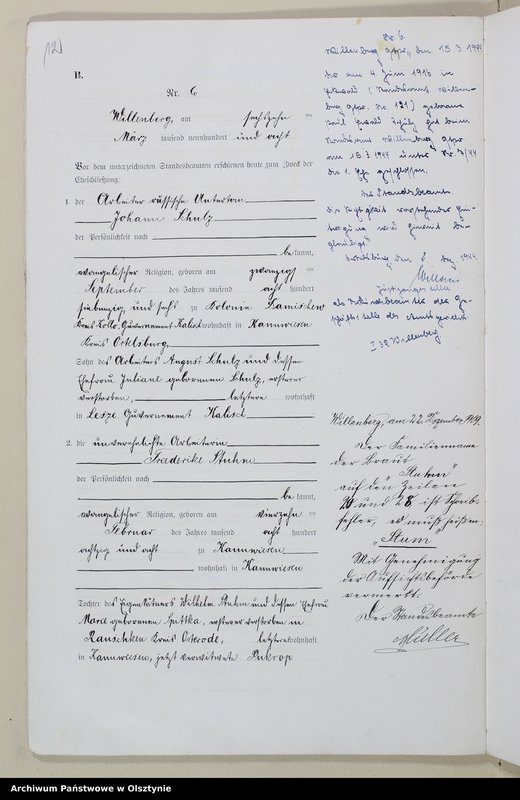 (12)
B.
Nr. 6
Willenberg, am sechszehn ten
März tausend neunhundert und acht
Vor dem unterzeichneten Standesbeamten erschienen heute zum Zweck der
Eheschließung:
1. der Arbeiter russische Untertan
Johann Schulz
der Persönlichkeit nach
be kannt,
evangelischer Religion, geboren am zwanzigsten
September des Jahres tausend acht hundert
siebenzig und sechs zu Kolonie
Kreis Kollo, Guvernement Kalisch wohnhaft in Kannwiesen
Kreis Ortelsburg,
Sohn des Arbeiters August Schulz und dessen
Ehefrau Juliane geborenen Schulz, ersterer
verstorben, letztere wohnhaft
in Guvernement Kalisch
2. die unverehelichte Arbeiterin
Frederike Stuhm
der Persönlichkeit nach
be kannt,
evangelischer Religion, geboren am vierzehn ten
Februar des Jahres tausend acht hundert
achtzig und acht zu Kannwiesen
wohnhaft in Kannwiesen
Tochter des Eigenkätners Wilhelm Stuhm und dessen Ehefrau
Marie geborenen Spittka, ersterer verstorben in
Rauschken Kreis Osterode, letztere wohnhaft
in Kannwiesen, jetzt verwitwete
Nr. 6.
Willenberg Ostpr., den 15.3.1944
Der am 4. Juni 1916 in
(Standesamt Willen-
berg Ostpr. Nr. 121) geborene
Schulz hat beim
Standesamt Willenberg Ostpr.
am 15.3.1944 unter Nr. 7/44
die 1. Ehe geschlossen.
Der Standesbeamte
Die Richtigkeit vorstehender Ein-
tragung wird hiermit be-
glaubigt
den 8. 1944
Justizangestellte
als Urkundsbeamter der Ge-
schäftsstelle des Amtsgerichts
Willenberg
Willenberg, am 22. Dezember 1909.
Der Familienname
der Braut
"Stuhm"
auf den Zeilen
20 und 28 ist Schreib-
fehler, es muß heißen:
"Stum"
Mit Genehmigung
der Aufsichtsbehörde
vermerkt.
Der Standesbeamte
Müller
Archiwum Państwowe w Olsztynie